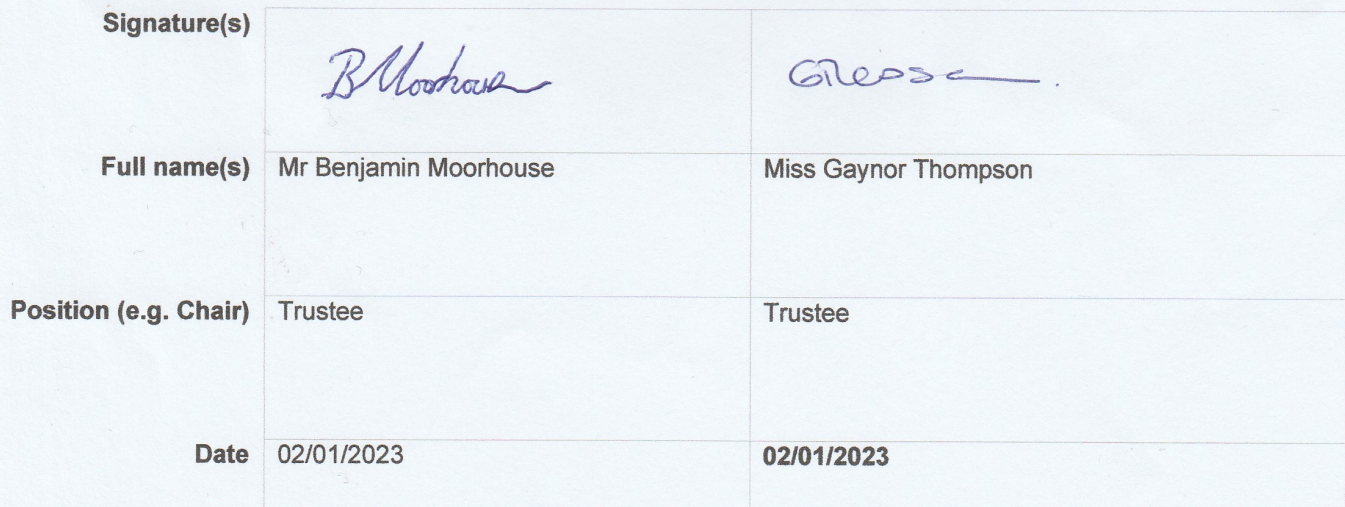 Signature(s)
B Moorhouse
Full name(s) Mr Benjamin Moorhouse Miss Gaynor Thompson
Position (e.g. Chair) Trustee Trustee
Date 02/01/2023 02/01/2023